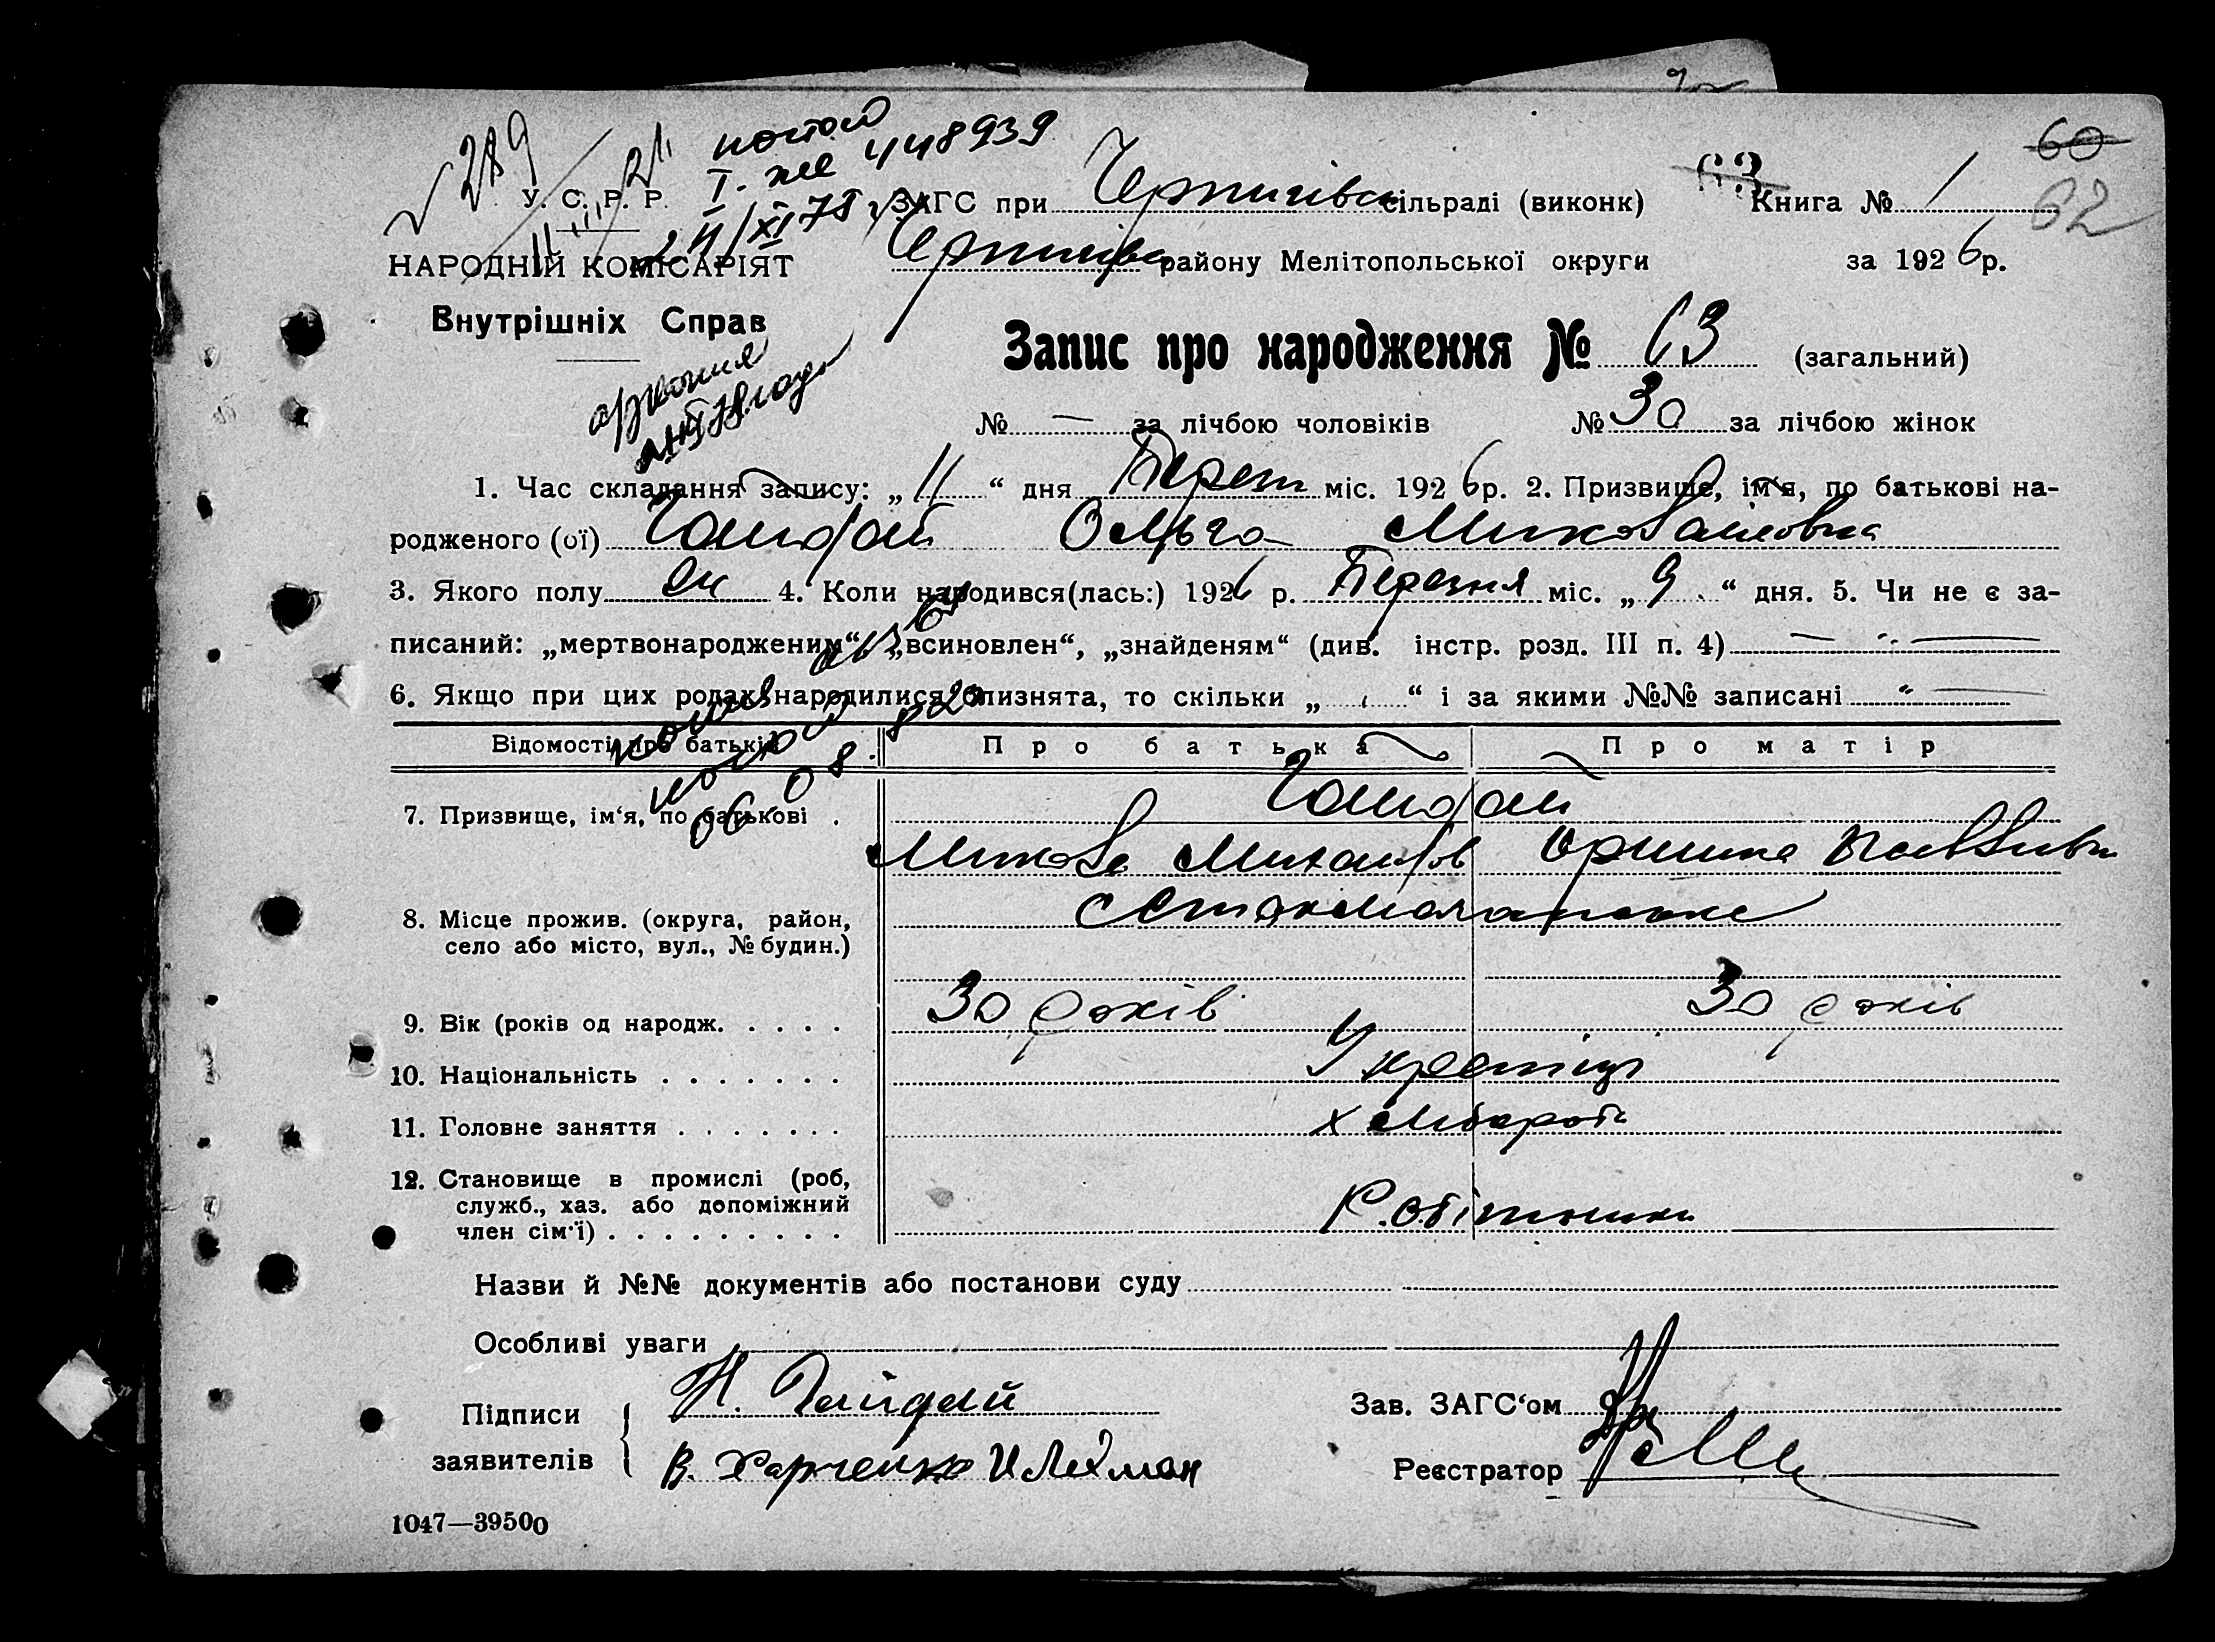 60
63
62
289
21
11
повтор
I. ЖС 448939
24/XI 78 г.
У. С. Р. Р.
НАРОДНІЙ КОМІСАРІЯТ
Внутрішніх Справ
ЗАГС при Чернигівск сільраді (виконк) Книга № 1
Чернигівск району Мелітопольської округи за 1926 р.
Запис про народження № 63 (загальний)
№ — за лічбою чоловіків № 30 за лічбою жінок
1. Час складання запису: „11“ дня Берез міс. 1926 р. 2. Призвище, ім'я, по батькові на-
родженого (ої) Гайдай Ольга Миколаіловна
3. Якого полу жін 4. Коли народився(лась:) 1926 р. Березня міс. „9“ дня. 5. Чи не є за-
писаний: „мертвонародженим“ „всиновлен“, „знайденям“ (див. інстр. розд. III п. 4) —
6. Якщо при цих родах народилися близнята, то скільки „ “ і за якими №№ записані —
Відомості про батьків Про батька Про матір
7. Призвище, ім'я, по батькові . Гайдай
Микола Михайлов Оришка Павлівн
8. Місце прожив. (округа, район,
село або місто, вул., № будин.)
9. Вік (років од народж. . . . . 30 років 30 років
10. Національність . . . . . . . Українці
11. Головне заняття . . . . . . . хлібороб
12. Становище в промислі (роб,
служб., хаз. або допоміжний
член сім'ї) . . . . . . . . . . Робітники
Назви й №№ документів або постанови суду
Особливі уваги
Підписи заявителів { Н. Гайдай
В. Харченко И Лехман
Зав. ЗАГС'ом
Реєстратор
1047—39500